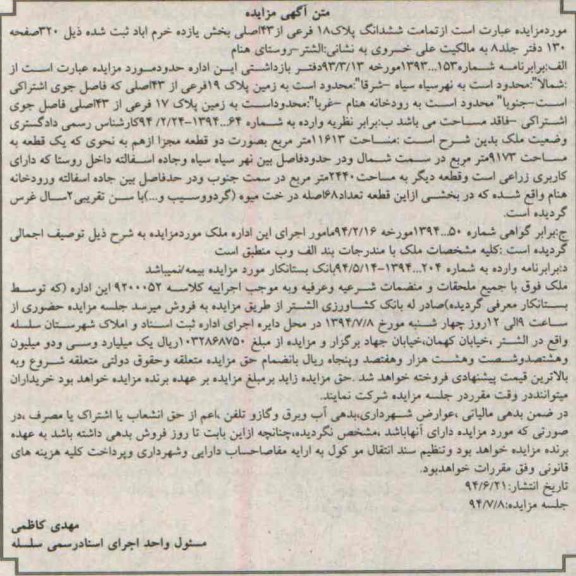 متن آگهی مزایده
موردمزایده عبارت است ازتمامت ششدانگ پلاک۱۸ فرعی از۴۳اصلی بخش یازده خرم اباد ثبت شده ذیل ۳۲۰صفحه
۱۳۰ دفتر جلد۸ به مالکیت علی خسروی به نشانی:الشتر-روستای هنام
الف:برابرنامه شماره۱۵۳...۱۳۹۳مورخه ۹۳/۳/۱۳دفتر بازداشتی این اداره حدودمورد مزایده عبارت است از
:شمالا":محدود است به نهرسیاه سیاه -شرقا":محدود است به زمین پلاک ۱۹فرعی از ۴۳اصلی که فاصل جوی اشتراکی
است-جنوبا" محدود است به رودخانه هنام -غربا":محدوداست به زمین پلاک ۱۷ فرعی از ۴۳اصلی فاصل جوی
اشتراکی -فاقد مساحت می باشد ب:برابر نظریه وارده به شماره ۶۴...۱۳۹۴-۹۴/۲/۲۴کارشناس رسمی دادگستری
وضعیت ملک بدین شرح است :مساحت ۱۱۶۱۳متر مربع بصورت دو قطعه مجزا ازهم به نحوی که یک قطعه به
مساحت ۹۱۷۳متر مربع در سمت شمال ودر حدودفاصل بین نهر سیاه سیاه وجاده اسفالته داخل روستا که دارای
کاربری زراعی است وقطعه دیگر به مساحت۲۴۴۰متر مربع در سمت جنوب ودر حدفاصل بین جاده اسفالته ورودخانه
هنام واقع شده که در بخشی ازاین قطعه تعداد۶۸اصله درخت میوه (گردووسیب و...)با سن تقریبی۲سال غرس
گردیده است.
ج:برابر گواهی شماره ۵۰...۱۳۹۴مورخه ۹۴/۲/۱۶مامور اجرای این اداره ملک موردمزایده به شرح ذیل توصیف اجمالی
گردیده است :کلیه مشخصات ملک با مندرجات بند الف وب منطبق است
د:برابرنامه وارده به شماره ۲۰۴...۱۳۹۴-۹۴/۵/۱۴بانک بستانکار مورد مزایده بیمه/نمیباشد
ملک فوق با جمیع ملحقات و منضمات شرعیه وعرفیه وبه موجب اجراییه کلاسه ۹۲۰۰۰۵۲ این اداره (که توسط
بستانکار معرفی گردیده)صادر له بانک کشاورزی الشتر از طریق مزایده به فروش میرسد جلسه مزایده حضوری از
ساعت ۹الی ۱۲روز چهار شنبه مورخ ۱۳۹۴/۷/۸ در محل دایره اجرای اداره ثبت اسناد و املاک شهرستان سلسله
واقع در الشتر ،خیابان کهمان،خیابان جهاد برگزار و مزایده از مبلغ ۱۰۳۲۸۶۸۷۵۰ریال یک میلیارد وسی ودو میلیون
وهشتصدوشصت وهشت هزار وهفتصد وپنجاه ریال بانضمام حق مزایده متعلقه وحقوق دولتی متعلقه شروع وبه
بالاترین قیمت پیشنهادی فروخته خواهد شد .حق مزایده زاید برمبلغ مزایده بر عهده برنده مزایده خواهد بود خریداران
میتواننددر وقت مقرردر جلسه مزایده شرکت نمایند.
در ضمن بدهی مالیاتی ،عوارض شهرداری،بدهی آب وبرق وگازو تلفن ،اعم از حق انشعاب یا اشتراک یا مصرف ،در
صورتی که مورد مزایده دارای آنهاباشد ،مشخص نگردیده،چنانچه ازاین بابت تا روز فروش بدهی داشته باشد به عهده
برنده مزایده خواهد بود وتنظیم سند انتقال مو کول به ارایه مفاصاحساب دارایی وشهرداری وپرداخت کلیه هزینه های
قانونی وفق مقررات خواهدبود.
تاریخ انتشار:۹۴/۶/۲۱
جلسه مزایده:۹۴/۷/۸
مهدی کاظمی
مسئول واحد اجرای اسنادرسمی سلسله